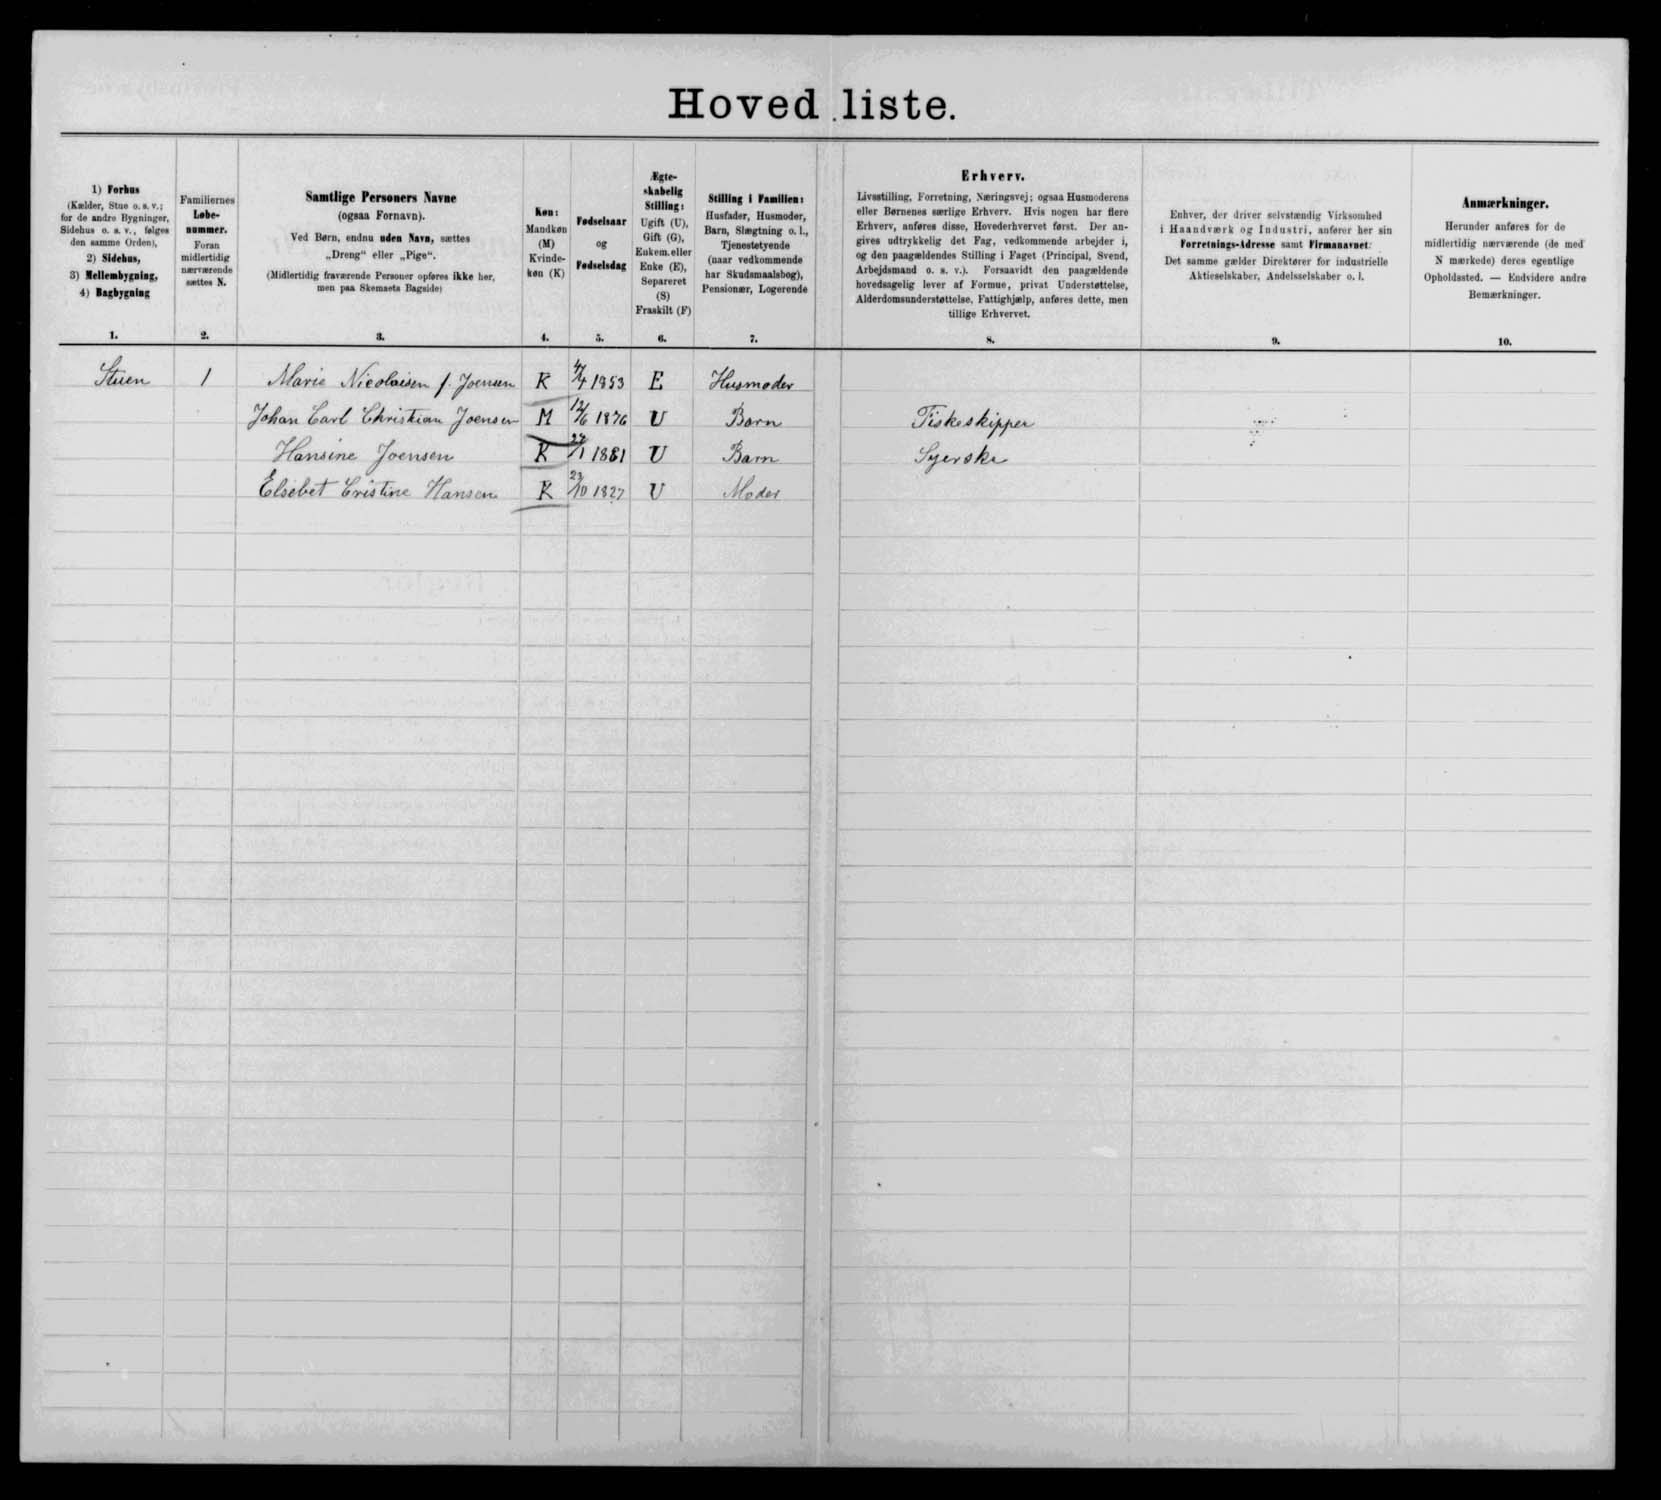 Hovedliste.
1) Forhus
(Kælder, Stue o. s. v.;
for de andre Bygninger,
Sidehus o. s. v., følges
den samme Orden),
2) Sidehus,
3) Mellembygning,
4) Bagbygning
1.
Familiernes
Løbe-
nummer.
Foran
midlertidig
nærværende
sættes N.
2.
Samtlige Personers Navne
(ogsaa Fornavn).
Ved Børn, endnu uden Navn, sættes
„Dreng“ eller „Pige“.
(Midlertidig fraværende Personer opføres ikke her,
men paa Skemaets Bagside)
3.
Køn:
Mandkøn
(M)
Kvinde-
køn (K)
4.
Fødselsaar
og
Fødselsdag
5.
Ægte-
skabelig
Stilling:
Ugift (U),
Gift (G),
Enkem. eller
Enke (E),
Separeret
(S)
Fraskilt (F)
6.
Stilling i Familien:
Husfader, Husmoder,
Barn, Slægtning o. l.,
Tjenestetyende
(naar vedkommende
har Skudsmaalsbog),
Pensionær, Logerende
7.
Erhverv.
Livsstilling, Forretning, Næringsvej; ogsaa Husmoderens
eller Børnenes særlige Erhverv. Hvis nogen har flere
Erhverv, anføres disse, Hovederhvervet først. Der an-
gives udtrykkelig det Fag, vedkommende arbejder i,
og den paagældendes Stilling i Faget (Principal, Svend,
Arbejdsmand o. s. v.). Forsaavidt den paagældende
hovedsagelig lever af Formue, privat Understøttelse,
Alderdomsunderstøttelse, Fattighjælp, anføres dette, men
tillige Erhvervet.
8.
Enhver, der driver selvstændig Virksomhed
i Haandværk og Industri, anfører her sin
Forretnings-Adresse samt Firmanavnet:
Det samme gælder Direktører for industrielle
Aktieselskaber, Andelsselskaber o. l.
9.
Anmærkninger.
Herunder anføres for de
midlertidig nærværende (de med
N mærkede) deres egentlige
Opholdssted. — Endvidere andre
Bemærkninger.
10.
Stuen 1 Marie Nicolaisen f. Joensen K 1853 E Husmoder
Johan Carl Christian Joensen M 12/6 1876 U Barn Fiskeskipper
Hansine Joensen K 1881 U Barn Syerske
Elsebet Cristine Hansen K 23/10 1827 U Moder